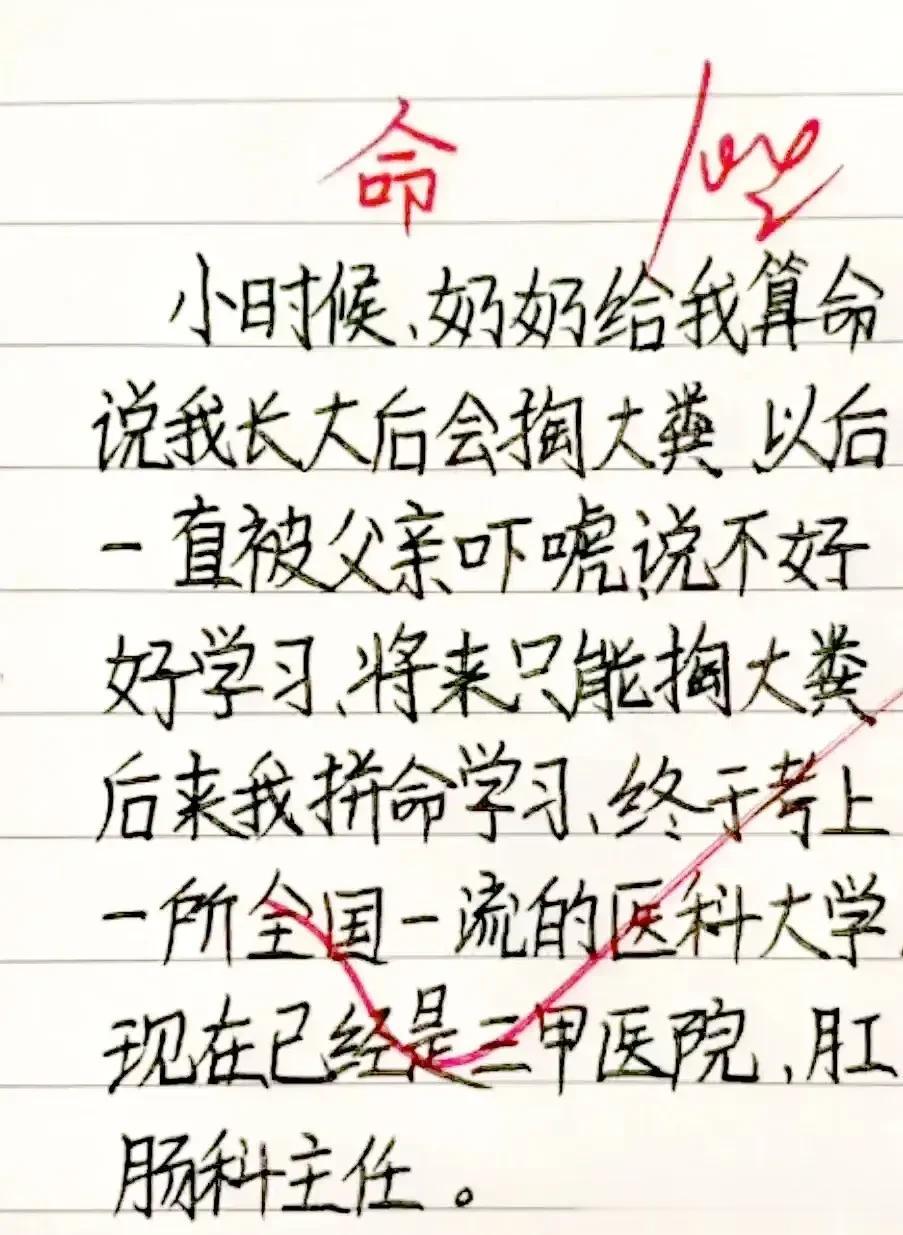 命
小时候、奶奶给我算命
说我长大后会掏大粪 以后
一直被父亲吓唬、说不好
好学习、将来只能掏大粪
后来我拼命学习、终于考上
一所全国一流的医科大学、
现在已经是三甲医院、肛
肠科主任。